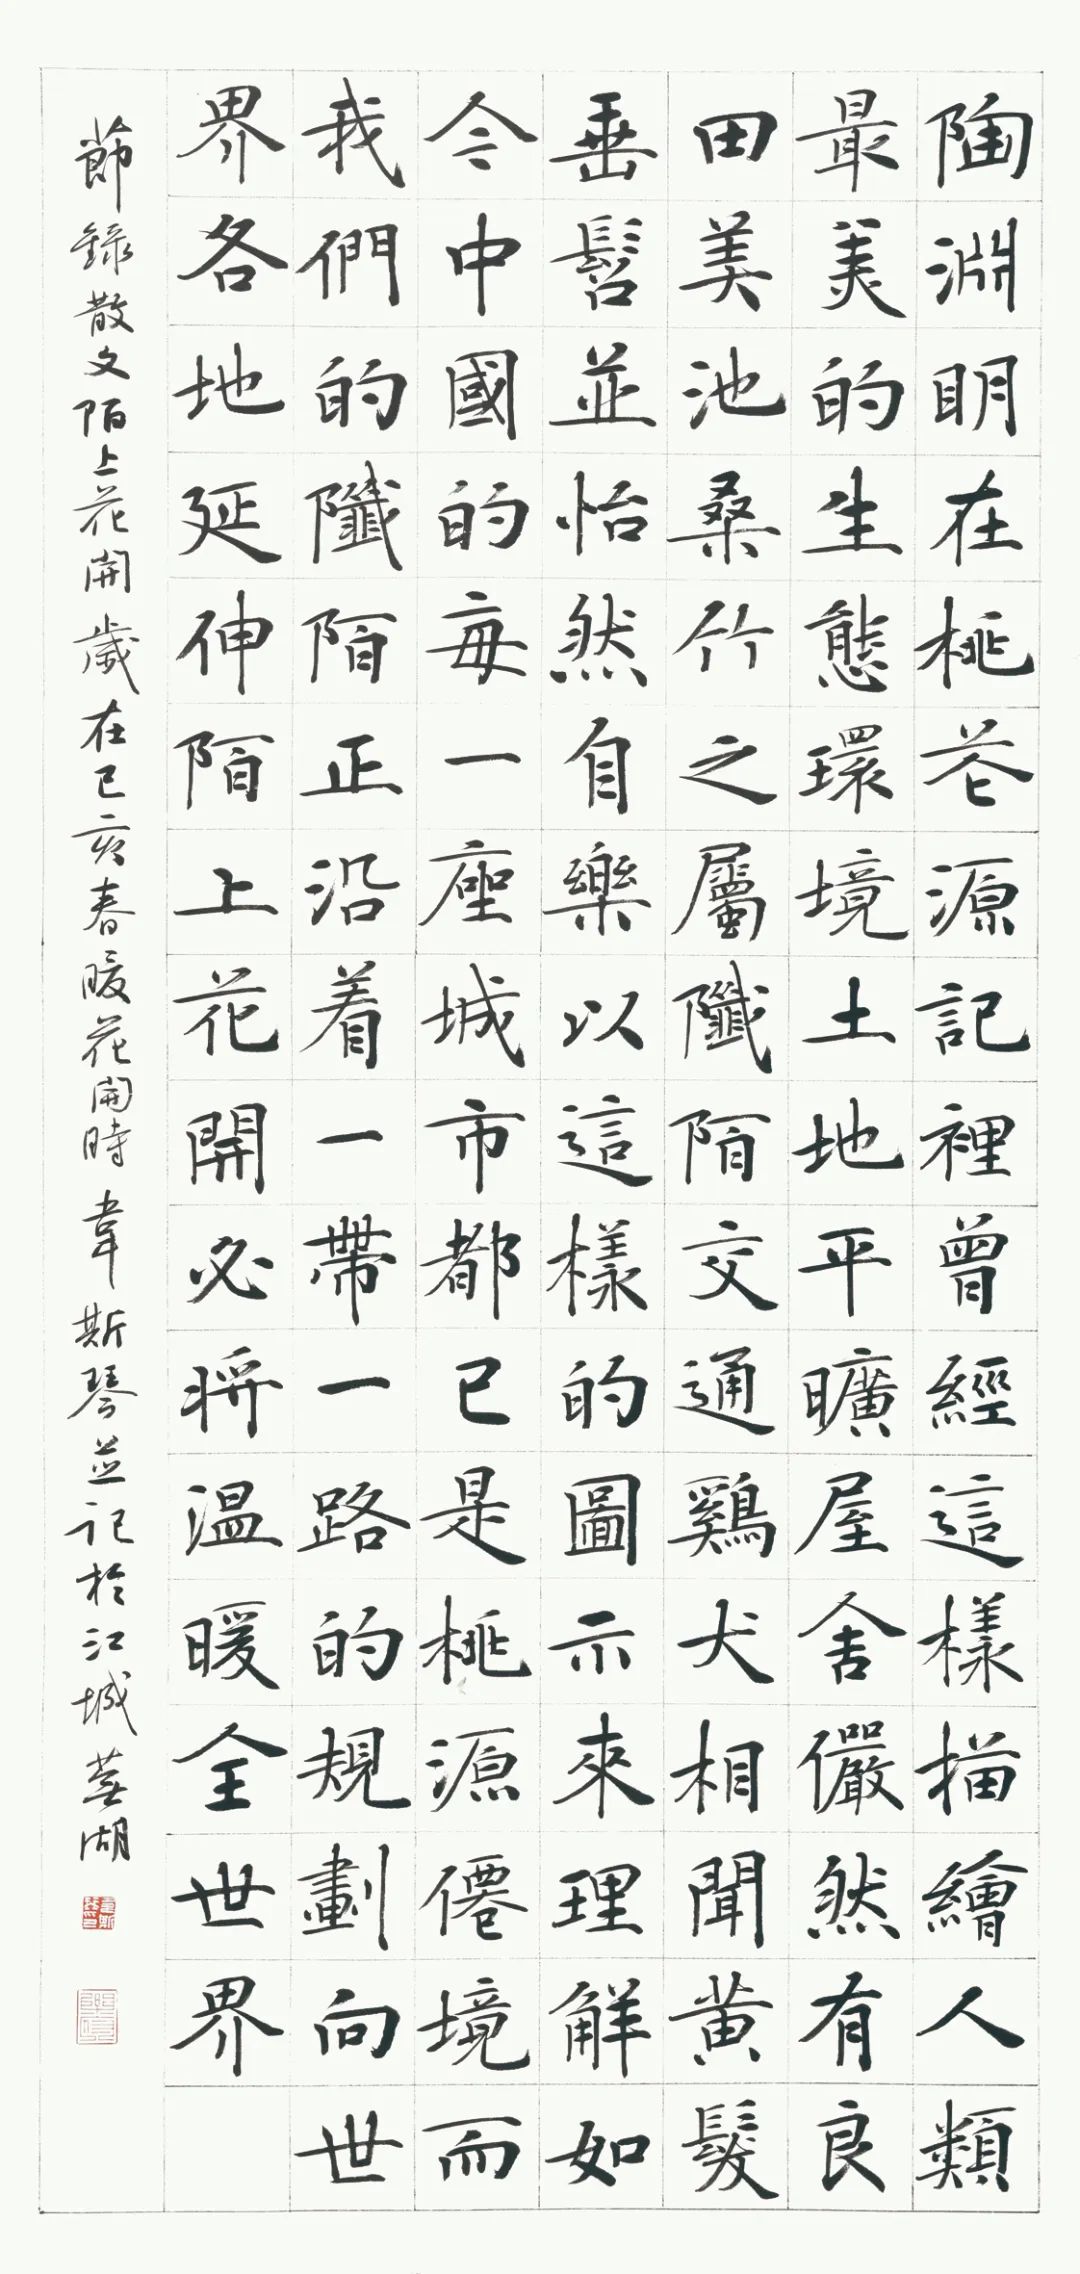 陶淵明在桃花源記裡曾經這樣描繪人類
最美的生態環境土地平曠屋舍儼然有良
田美池桑竹之屬阡陌交通鷄犬相聞黄髮
垂髫並怡然自樂以這樣的圖示來理解如
今中國的每一座城市都已是桃源僊境而
我們的阡陌正沿着一帶一路的規劃向世
界各地延伸陌上花開必將温暖全世界
節錄散文陌上花開歲在己亥春暖花開時韋斯琴並記於江城蕪湖